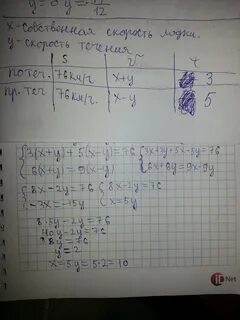 y = 0 y = 11/12
x-собственная скорость лодки.
y-скорость течения
S v t
по теч. 76км/ч. x+y 3
пр. теч 76км/ч. x-y 5
{3(x+y)+5(x-y)=76 {3x+3y+5x-5y=76
{6(x+y)=9(x-y) {6x+6y=9x-9y
{8x-2y=76 {8x-2y=76
{-3x=-15y {x=5y
8·5y-2y=76
40y-2y=76
38y=76
y=2
x=5y=5·2=10
Net